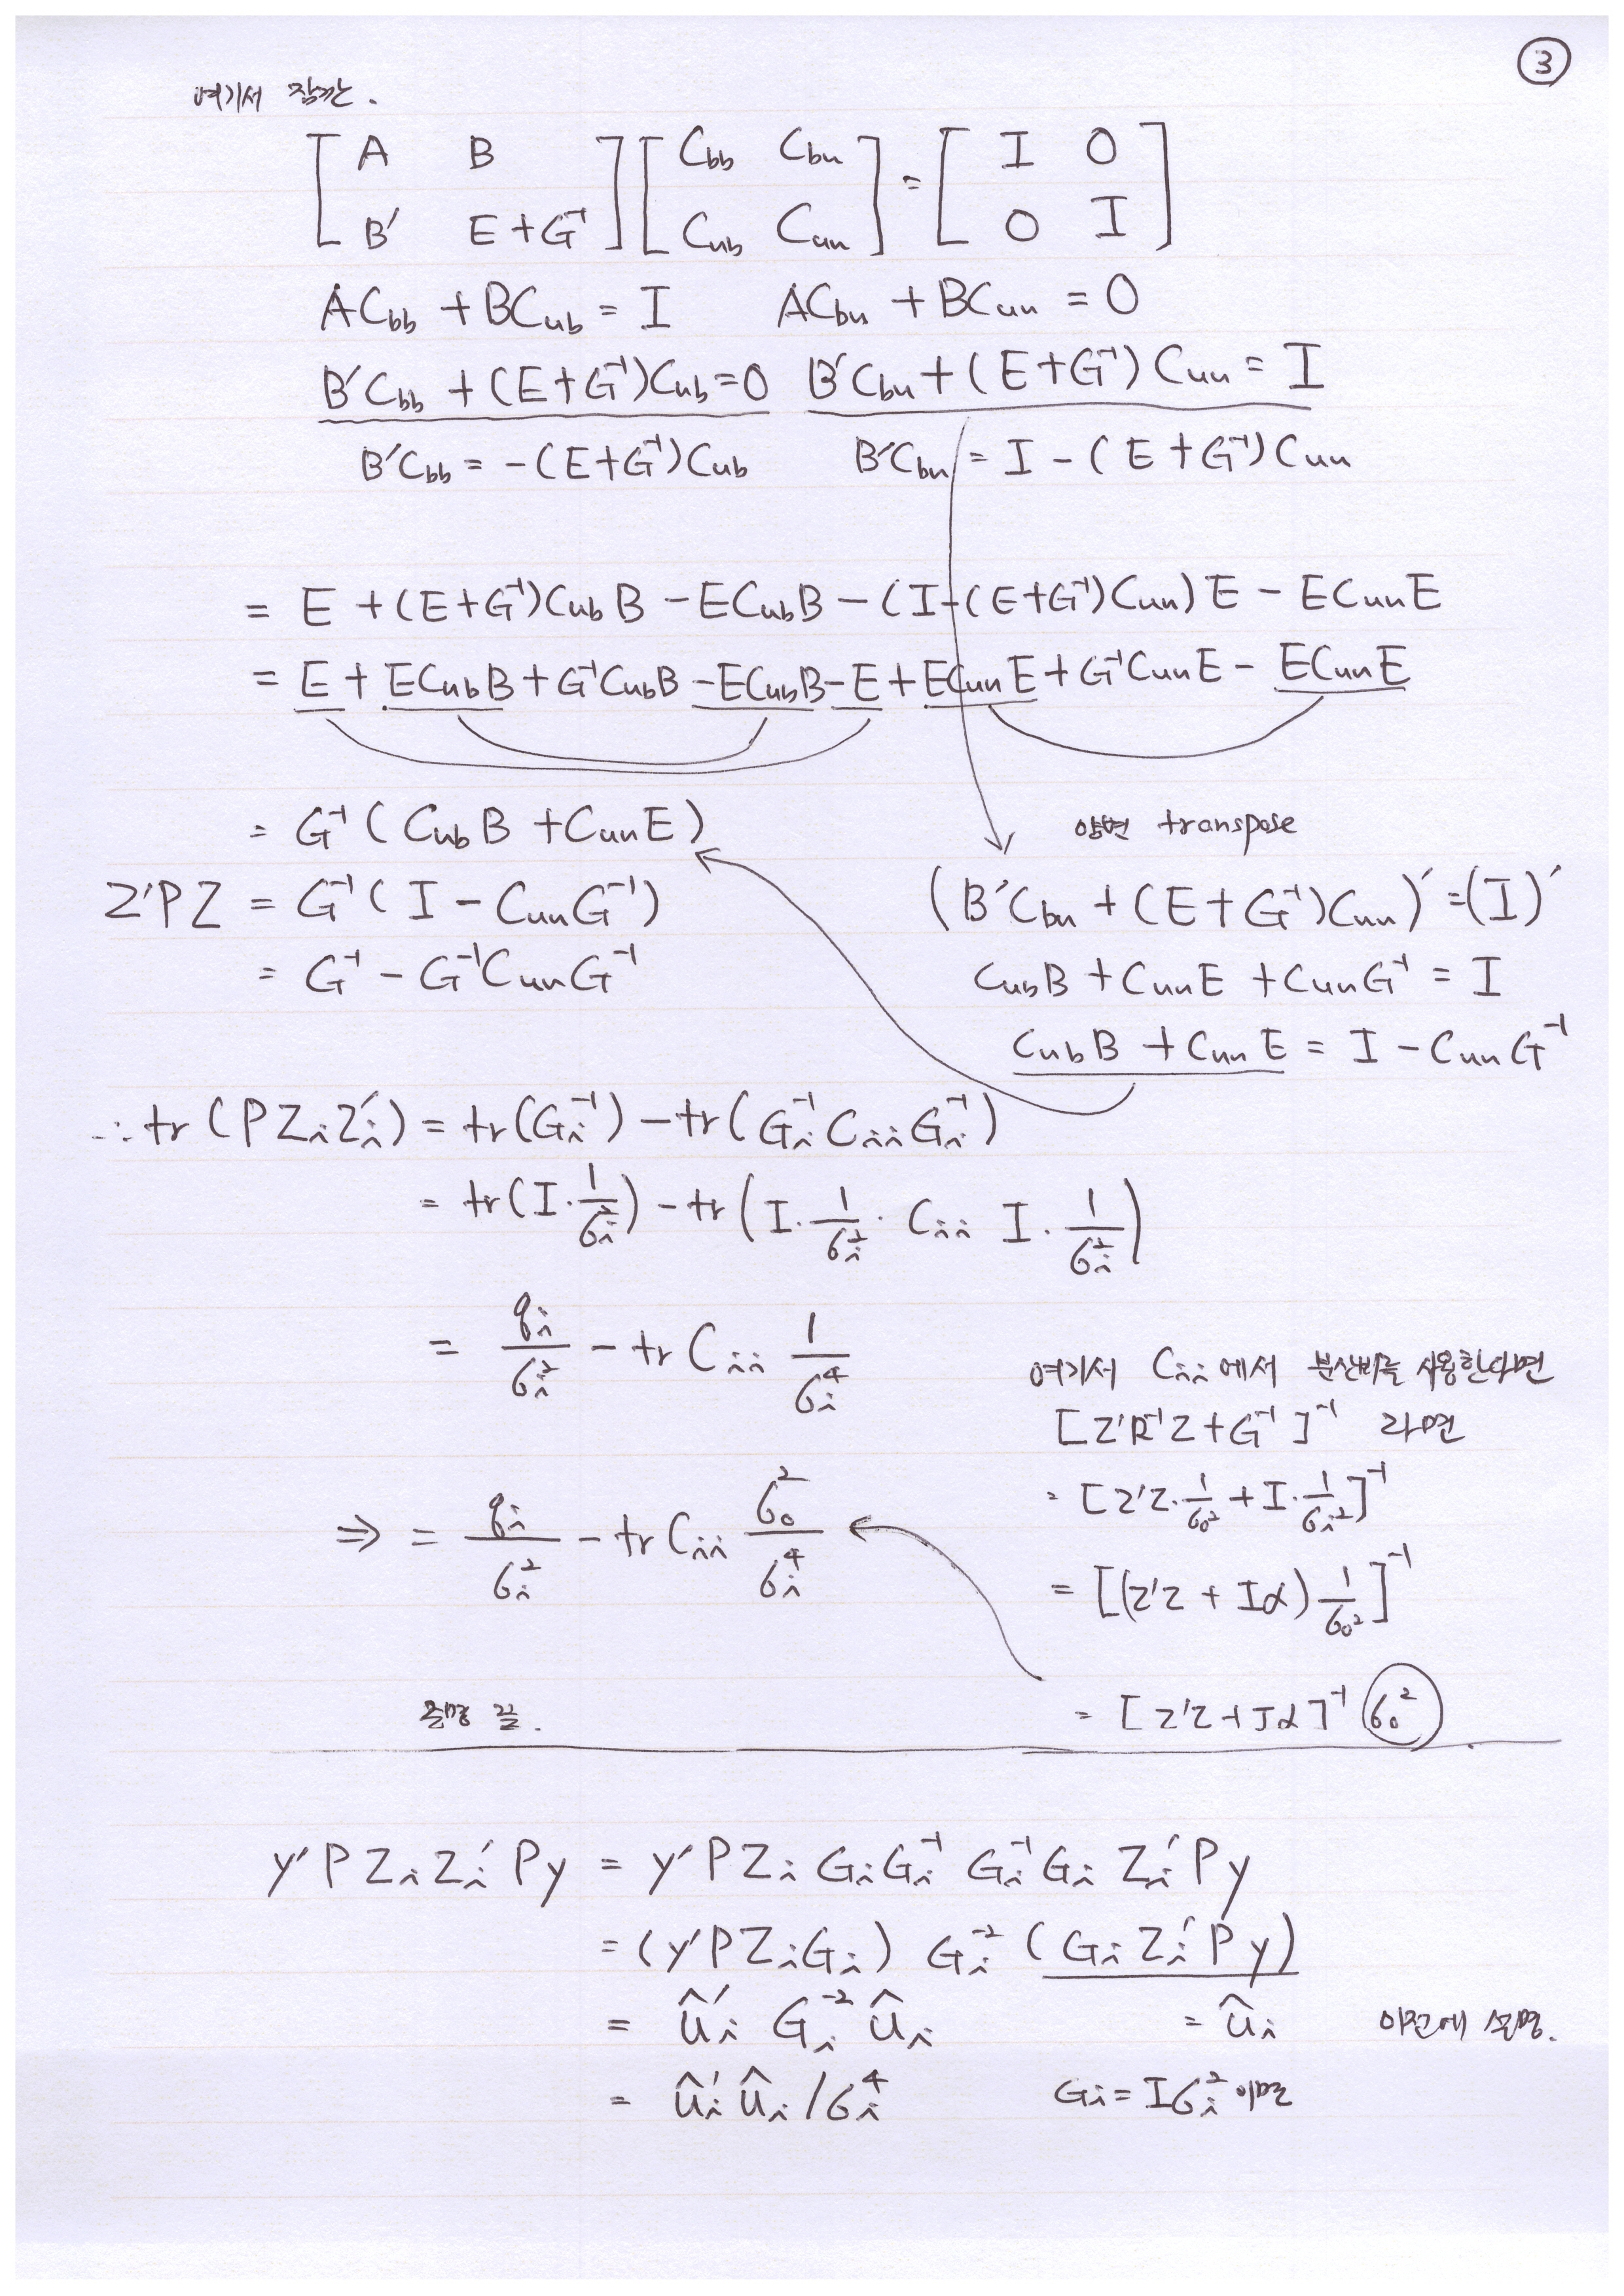 ③
여기서 잠깐.
[ A B ; B′ E+G⁻¹ ] [ Cbb Cbu ; Cub Cuu ] = [ I O ; O I ]
ACbb + BCub = I    ACbu + BCuu = O
B′Cbb + (E+G⁻¹)Cub = O    B′Cbu + (E+G⁻¹)Cuu = I
B′Cbb = -(E+G⁻¹)Cub    B′Cbu = I - (E+G⁻¹)Cuu
= E + (E+G⁻¹)CubB - ECubB - (I-(E+G⁻¹)Cuu)E - ECuuE
= E + ECubB + G⁻¹CubB - ECubB - E + ECuuE + G⁻¹CuuE - ECuuE
= G⁻¹(CubB + CuuE)
Z′PZ = G⁻¹(I - CuuG⁻¹)
= G⁻¹ - G⁻¹CuuG⁻¹
양변 transpose
(B′Cbu + (E+G⁻¹)Cuu)′ = (I)′
CubB + CuuE + CuuG⁻¹ = I
CubB + CuuE = I - CuuG⁻¹
∴ tr(PZᵢZᵢ′) = tr(Gᵢ⁻¹) - tr(Gᵢ⁻¹CᵢᵢGᵢ⁻¹)
= tr(I·1/σᵢ²) - tr(I·1/σᵢ²·Cᵢᵢ I·1/σᵢ²)
= qᵢ/σᵢ² - trCᵢᵢ 1/σᵢ⁴
⇒ = qᵢ/σᵢ² - trCᵢᵢ σ₀²/σᵢ⁴
여기서 Cᵢᵢ에서 분산비를 사용한다면
[Z′R⁻¹Z+G⁻¹]⁻¹ 라면
= [Z′Z·1/σ₀² + I·1/σᵢ²]⁻¹
= [(Z′Z + Iα)1/σ₀²]⁻¹
= [Z′Z+Iα]⁻¹ σ₀²
증명 끝.
y′PZᵢZᵢ′Py = y′PZᵢGᵢGᵢ⁻¹Gᵢ⁻¹GᵢZᵢ′Py
= (y′PZᵢGᵢ) Gᵢ⁻² (GᵢZᵢ′Py)
= ûᵢ′Gᵢ⁻²ûᵢ    = ûᵢ    이전에 설명.
= ûᵢ′ûᵢ/σᵢ⁴    Gᵢ = Iσᵢ² 이면